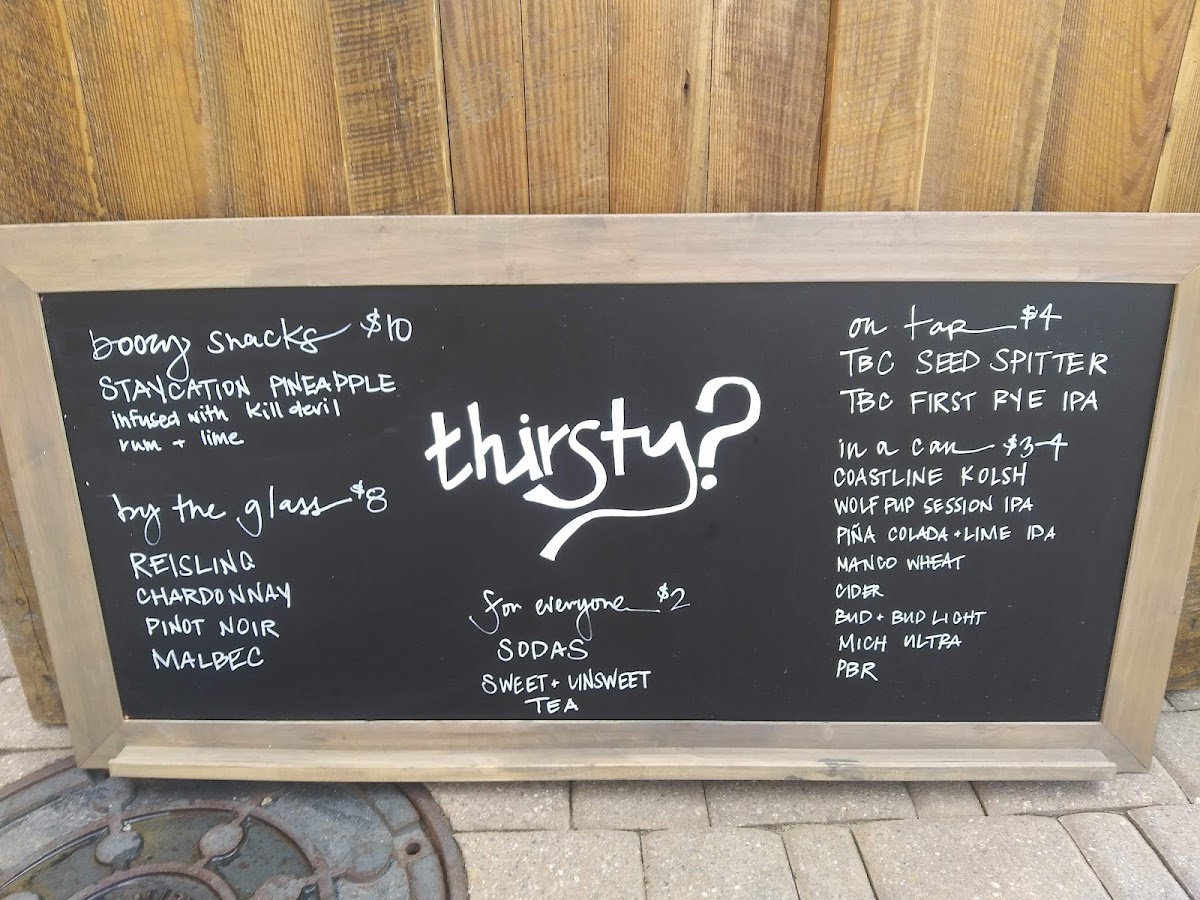 boozy snacks $10
STAYCATION PINEAPPLE
infused with kill devil
rum + lime
by the glass $8
REISLING
CHARDONNAY
PINOT NOIR
MALBEC
thirsty?
for everyone $2
SODAS
SWEET + UNSWEET
TEA
on tap $4
TBC SEED SPITTER
TBC FIRST RYE IPA
in a can $3-4
COASTLINE KOLSH
WOLF PUP SESSION IPA
PIÑA COLADA + LIME IPA
MANGO WHEAT
CIDER
BUD + BUD LIGHT
MICH ULTRA
PBR